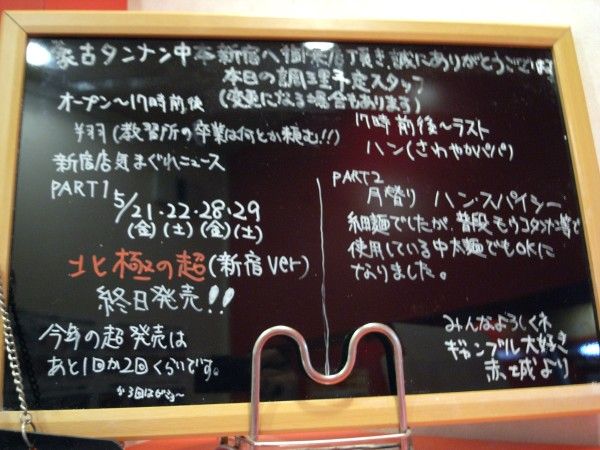 蒙古タンメン中本新宿へ御来店頂き誠にありがとうございます
本日の調理予定スタッフ
(変更になる場合もあります)
オープン〜17時前後
(教習所の卒業は何とか頼む!!)
17時前後〜ラスト
ハン(さわやかパパ)
新宿店気まぐれニュース
PART1
5/21・22・28・29
(金)(土)(金)(土)
北極の超(新宿ver)
終日発売!!
今年の超発売は
あと1回か2回くらいです。
PART2
月替り ハン・スパイシー
細麺でしたが、普段モウコタンメン等で
使用している中太麺でもOKに
なりました。
みんなよろしくネ
ギャンブル大好き
赤城より